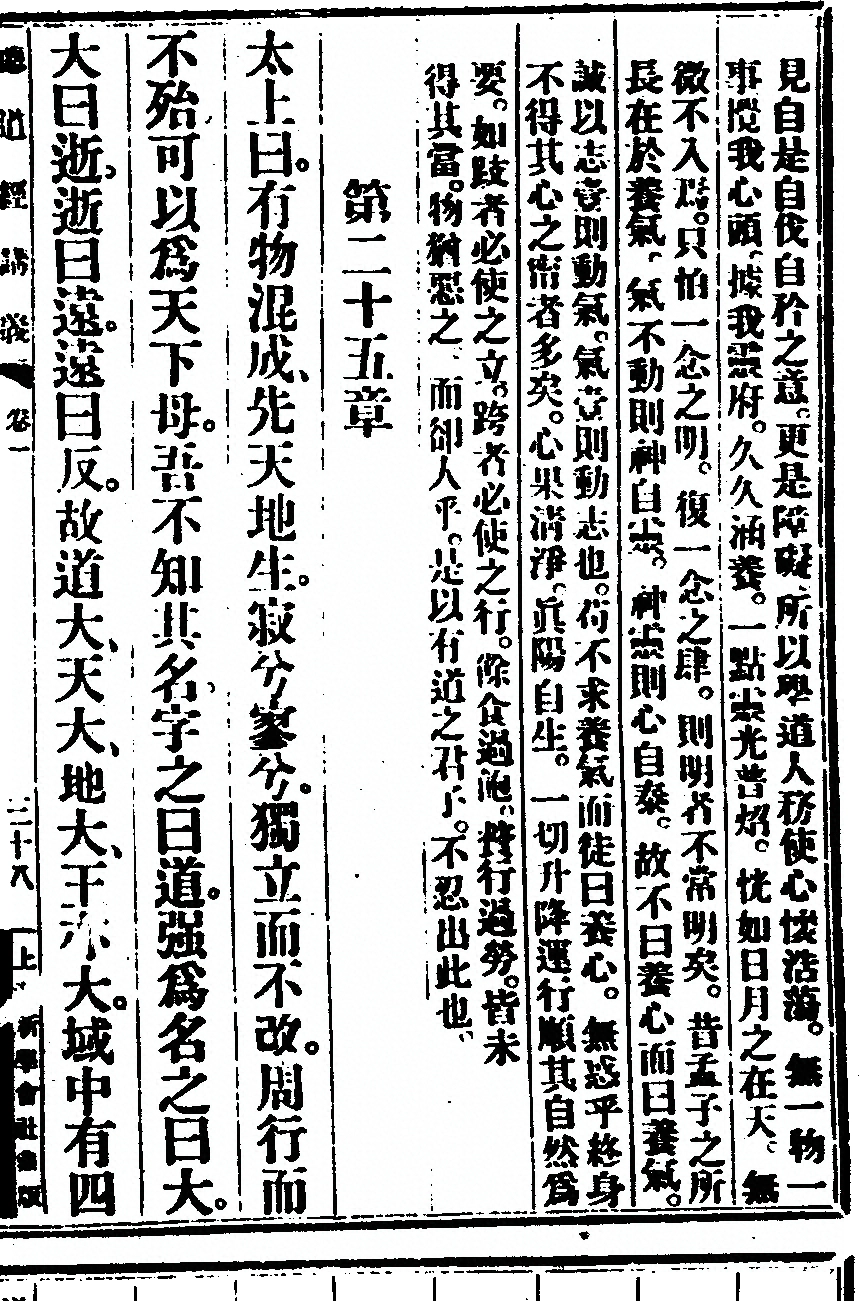 見自是自伐自矜之意。更是障礙、所以學道人務使心懷浩蕩。無一物一
事攪我心頭、據我靈府。久久涵養。一點靈光普炤。恍如日月之在天、無
微不入焉。只怕一念之明。復一念之肆。則明者不常明矣。昔孟子之所
長在於養氣、氣不動則神自靈。神靈則心自泰。故不曰養心而曰養氣。
誠以志壹則動氣。氣壹則動志也。苟不求養氣而徒曰養心。無惑乎終身
不得其心之寧者多矣。心果清淨。眞陽自生。一切升降運行順其自然爲
要。如跂者必使之立。跨者必使之行。餘食過飽。贅行過勞。皆未
得其當。物猶惡之、而卻人乎。是以有道之君子。不忍出此也、
第二十五章
太上曰。有物混成、先天地生。寂兮寥兮。獨立而不改。周行而
不殆、可以爲天下母。吾不知其名、字之曰道。强爲名之曰大。
大曰逝、逝曰遠。遠曰反。故道大、天大、地大、王亦大。域中有四
道經講義 卷一
二十八 上
新學會社出版